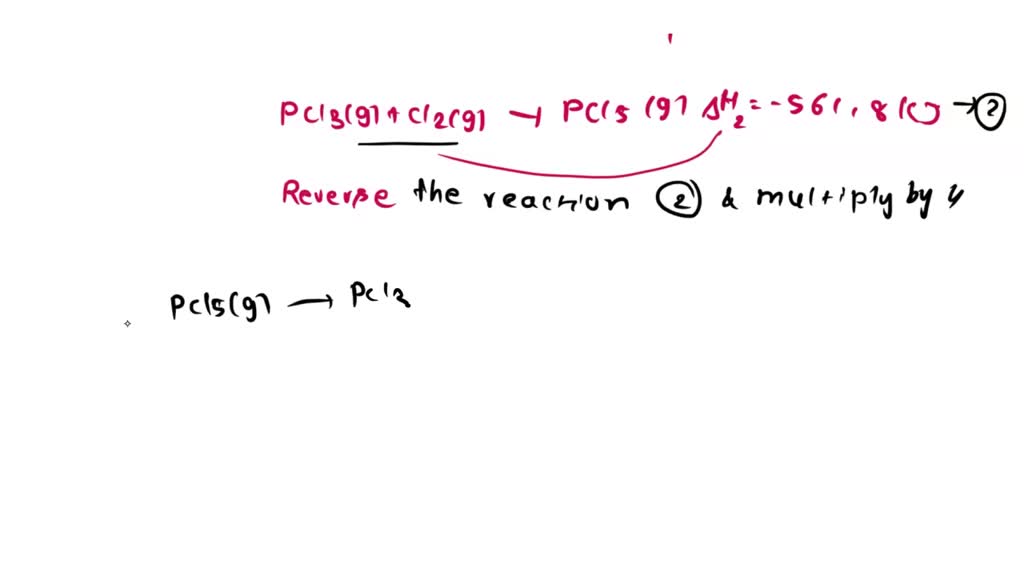 PCl3(g) + Cl2(g) → PCl5 (g) ΔH2 = -561.8 KJ → ②
Reverse the reaction ② & multiply by 4
PCl5(g) → PCl3